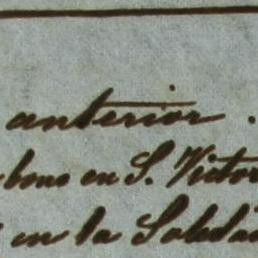 anterior.
bono en S. Victor
en la Soleda